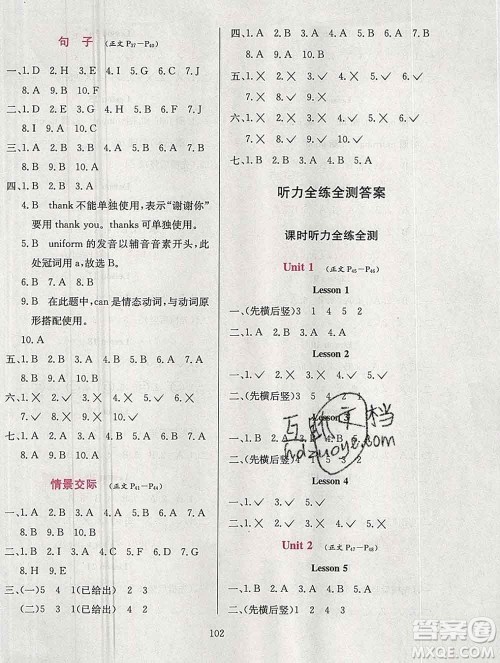 句 子 (正文 P37-P40)
一、1. D 2. H 3. E 4. F 5. I 6. C 7. J
8. A 9. G 10. B
二、1. H 2. E 3. G 4. A 5. C 6. J 7. D
8. I 9. F 10. B
三、1. C 2. D 3. A 4. C 5. C 6. D 7. D
8. B 9. B 10. A
四、1. B 2. A 3. A 4. A 5. B 6. B
7. B thank 不能单独使用,表示“谢谢你”
要用 thank you。thanks 可单独使用。
8. B uniform 的发音以辅音音素开头,此
处冠词用 a,故选 B。
9. B 在此题中,can 是情态动词,与动词原
形搭配使用。
10. A
五、1. B 2. D 3. C 4. E 5. A
六、1. × 2. ✓ 3. ✓ 4. × 5. × 6. ✓
7. ✓ 8. × 9. ✓ 10. ✓
七、1. B 2. C 3. C 4. B 5. A 6. C 7. A
8. B 9. B 10. A
情景交际 (正文 P41-P44)
一、1. B 2. B 3. A 4. B 5. A 6. A 7. A
8. B 9. A 10. B
二、1. D 2. C 3. H 4. G 5. A 6. F 7. J
8. E 9. B 10. I
三、(一)5 4 1(已给出) 2 3
(二)5 4 1(已给出) 3 2
四、1. B 2. A 3. A 4. A 5. B 6. A 7. A
8. A 9. B 10. A
五、1. × 2. × 3. ✓ 4. ✓ 5. × 6. ✓
7. × 8. ✓ 9. ✓ 10. ✓
六、1. × 2. ✓ 3. ✓ 4. ✓ 5. × 6. ×
7. ✓ 8. × 9. ✓ 10. ✓
七、1. B 2. C 3. A 4. B 5. A
听力全练全测答案
课时听力全练全测
Unit 1 (正文 P45-P46)
Lesson 1
一、(先横后竖)3 1 4 5 2
二、1. × 2. ✓ 3. ✓ 4. ×
Lesson 2
一、1. B 2. A 3. B 4. A 5. A
二、(先横后竖)3 5 4 2 1
Lesson 3
一、1. B 2. A 3. B 4. B 5. A
二、(先横后竖)4 5 3 2 1
Lesson 4
一、1. × 2. × 3. ✓ 4. ✓ 5. ✓
二、1. × 2. ✓ 3. × 4. ✓
Unit 2 (正文 P47-P48)
Lesson 5
一、1. B 2. A 3. B 4. A 5. B
二、(先横后竖)2 1 4 3
互助文档
hdzuoye.com
102
答案圈
MXQE.COM